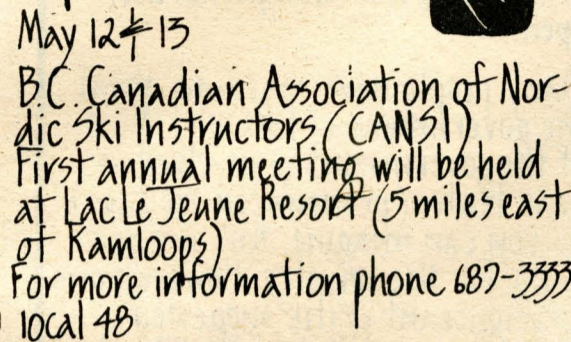 May 12 & 13
B.C. Canadian Association of Nor-
dic Ski Instructors (CANSI)
First annual meeting will be held
at Lac Le Jeune Resort (5 miles east
of Kamloops)
For more information phone 687-3333
local 48